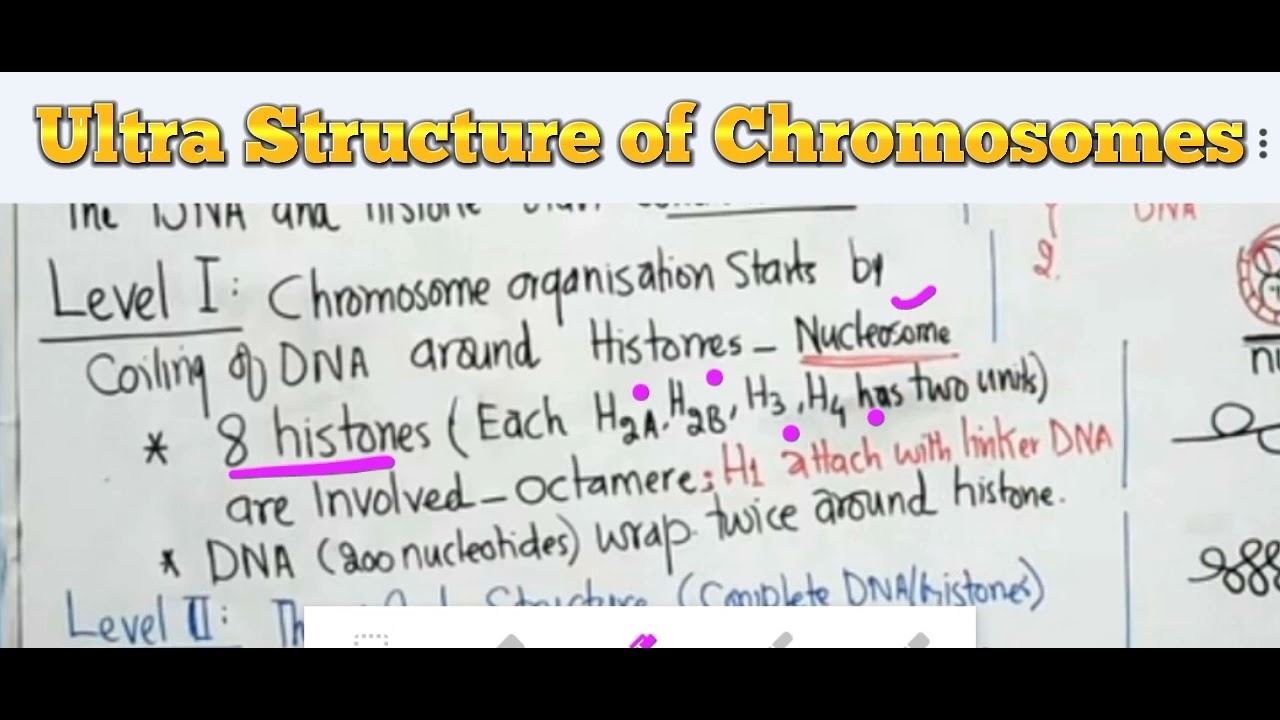 Ultra Structure of Chromosomes
The DNA and histone
DNA
2.
Level I: Chromosome organisation Starts by
Coiling of DNA around Histones - Nucleosome
* 8 histones (Each H2A, H2B, H3, H4 has two units)
are Involved - Octamere; H1 attach with linker DNA
* DNA (200 nucleotides) wrap twice around histone.
Level II: Structure (Complete DNA/histones)